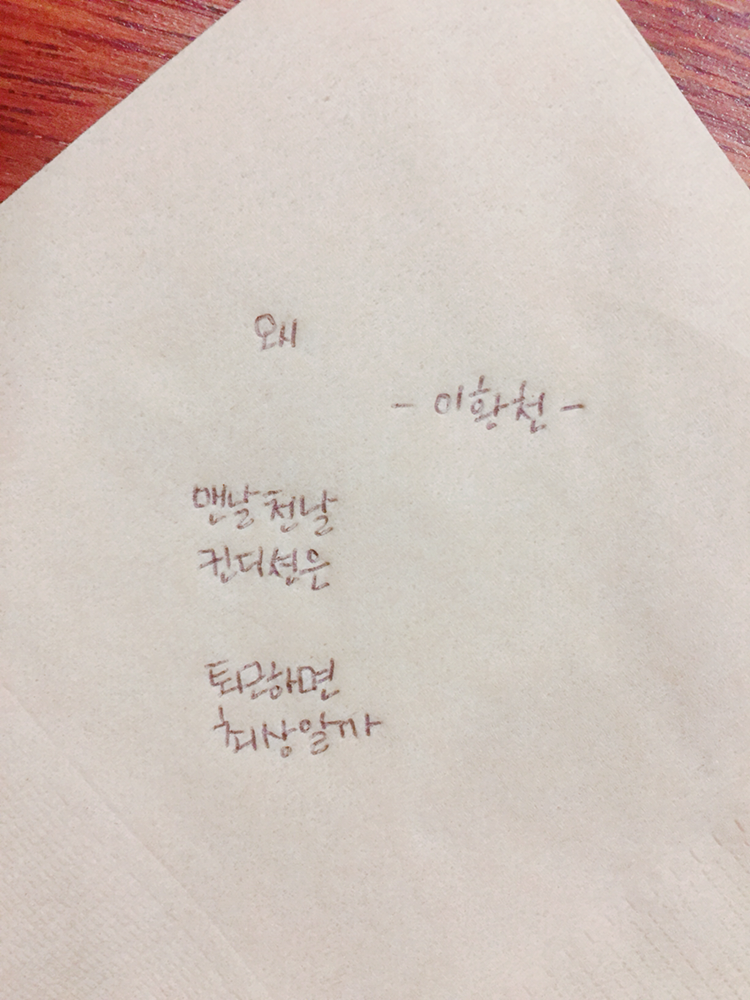 왜
- 이황천 -
맨날천날
컨디션은
퇴근하면
최상일까